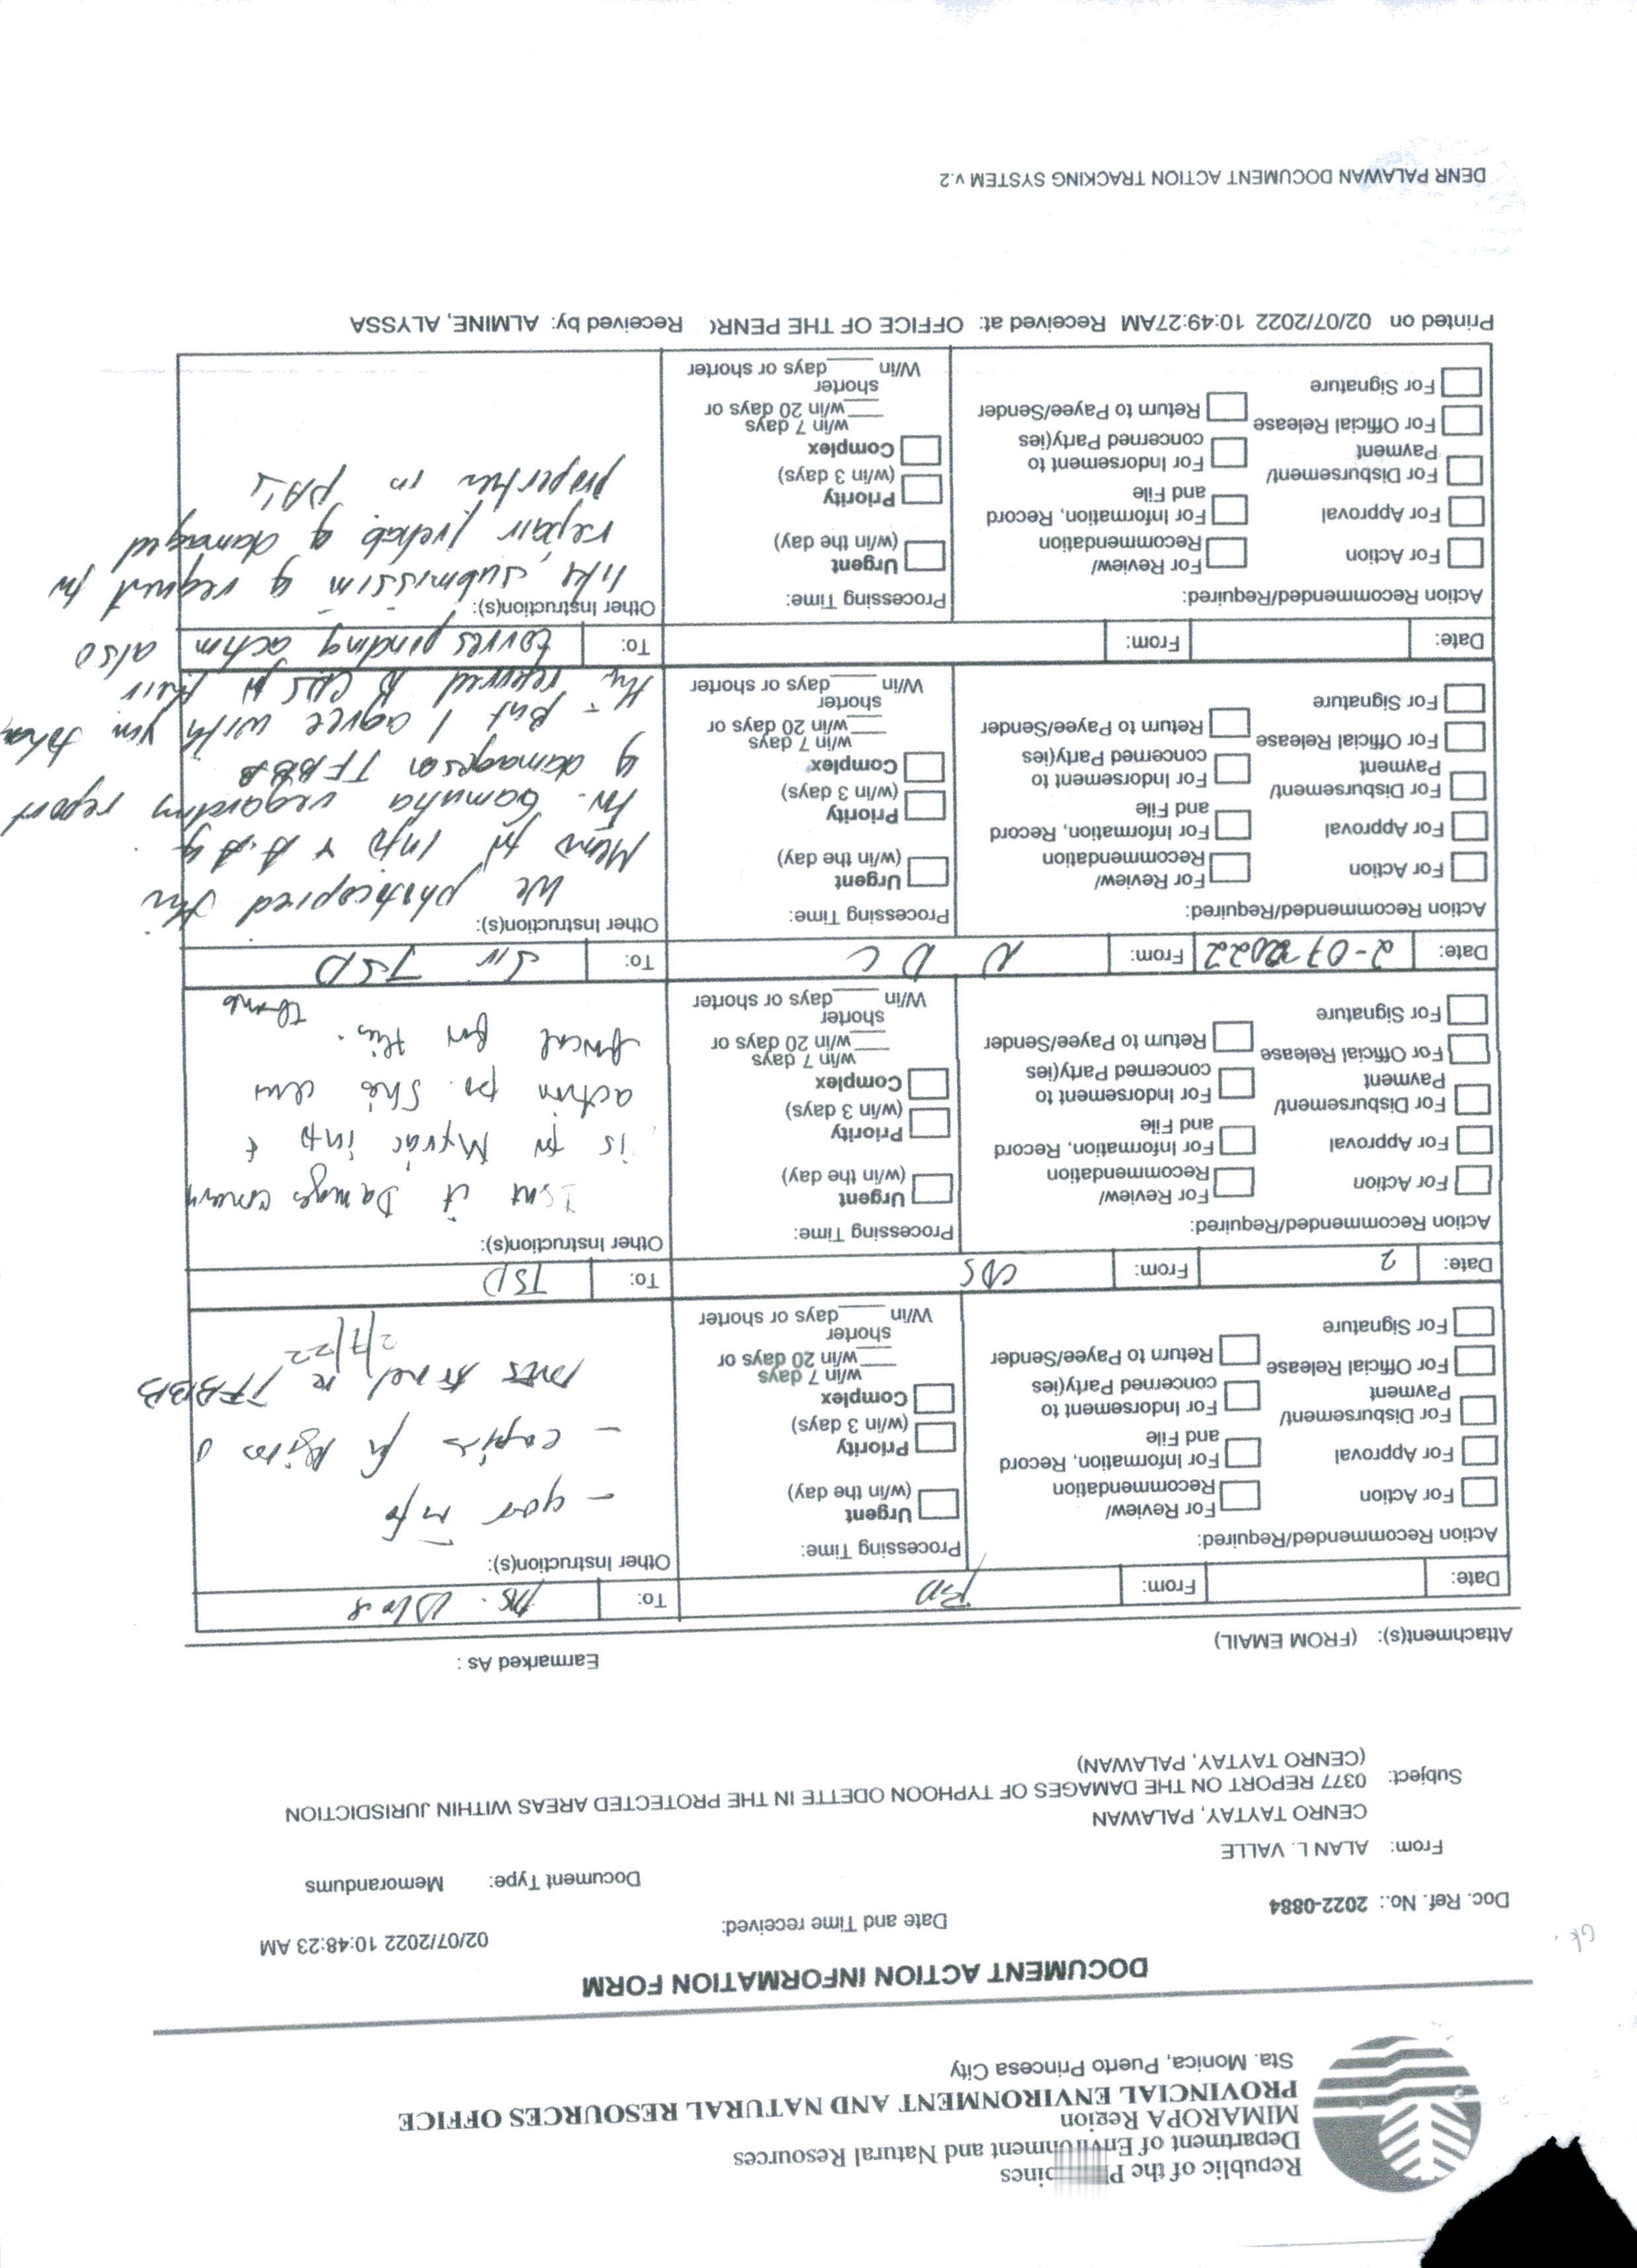 Republic of the P
Department of Environment and Natural Resources
MIMAROPA Region
PROVINCIAL ENVIRONMENT AND NATURAL RESOURCES OFFICE
Sta. Monica, Puerto Princesa City
DOCUMENT ACTION INFORMATION FORM
Doc. Ref. No.: 2022-0884 Date and Time received: 02/07/2022 10:48:23 AM
From: ALAN L. VALLE Document Type: Memorandums
CENRO TAYTAY, PALAWAN
Subject: 0377 REPORT ON THE DAMAGES OF TYPHOON ODETTE IN THE PROTECTED AREAS WITHIN JURISDICTION
(CENRO TAYTAY, PALAWAN)
Attachment(s): (FROM EMAIL) Earmarked As :
Date: From: To: Ms.
Action Recommended/Required: Processing Time: Other Instruction(s):
For Action For Review/ Recommendation Urgent (w/in the day)
For Approval For Information, Record and File Priority (w/in 3 days)
For Disbursement/ Payment For Indorsement to concerned Party(ies Complex w/in 7 days
For Official Release Return to Payee/Sender ___w/in 20 days or shorter
For Signature W/in ____days or shorter
- your info
- copies for
re TFBBB
2/7/22
Date: 2 From: CDS To: TSD
Action Recommended/Required: Processing Time: Other Instruction(s):
For Action For Review/ Recommendation Urgent (w/in the day)
For Approval For Information, Record and File Priority (w/in 3 days)
For Disbursement/ Payment For Indorsement to concerned Party(ies Complex w/in 7 days
For Official Release Return to Payee/Sender ___w/in 20 days or shorter
For Signature W/in ____days or shorter
Isnt it Damages
is for info &
action po. She
focal for this.
Date: 2-07-2022 From: To: Sir TSD
Action Recommended/Required: Processing Time: Other Instruction(s):
For Action For Review/ Recommendation Urgent (w/in the day)
For Approval For Information, Record and File Priority (w/in 3 days)
For Disbursement/ Payment For Indorsement to concerned Party(ies Complex w/in 7 days
For Official Release Return to Payee/Sender ___w/in 20 days or shorter
For Signature W/in ____days or shorter
We photocopied this
Memo for info &
For. Gamuha regarding report
of damages on TFBBB
- But I agree with you
this referred to CDS for their
Date: From: To: corresponding action also
Action Recommended/Required: Processing Time: Other Instruction(s):
For Action For Review/ Recommendation Urgent (w/in the day)
For Approval For Information, Record and File Priority (w/in 3 days)
For Disbursement/ Payment For Indorsement to concerned Party(ies Complex w/in 7 days
For Official Release Return to Payee/Sender ___w/in 20 days or shorter
For Signature W/in ____days or shorter
like submission of request for
repair/rehab of damaged
properties in PA's
Printed on 02/07/2022 10:49:27AM Received at: OFFICE OF THE PENR( Received by: ALMINE, ALYSSA
DENR PALAWAN DOCUMENT ACTION TRACKING SYSTEM v.2